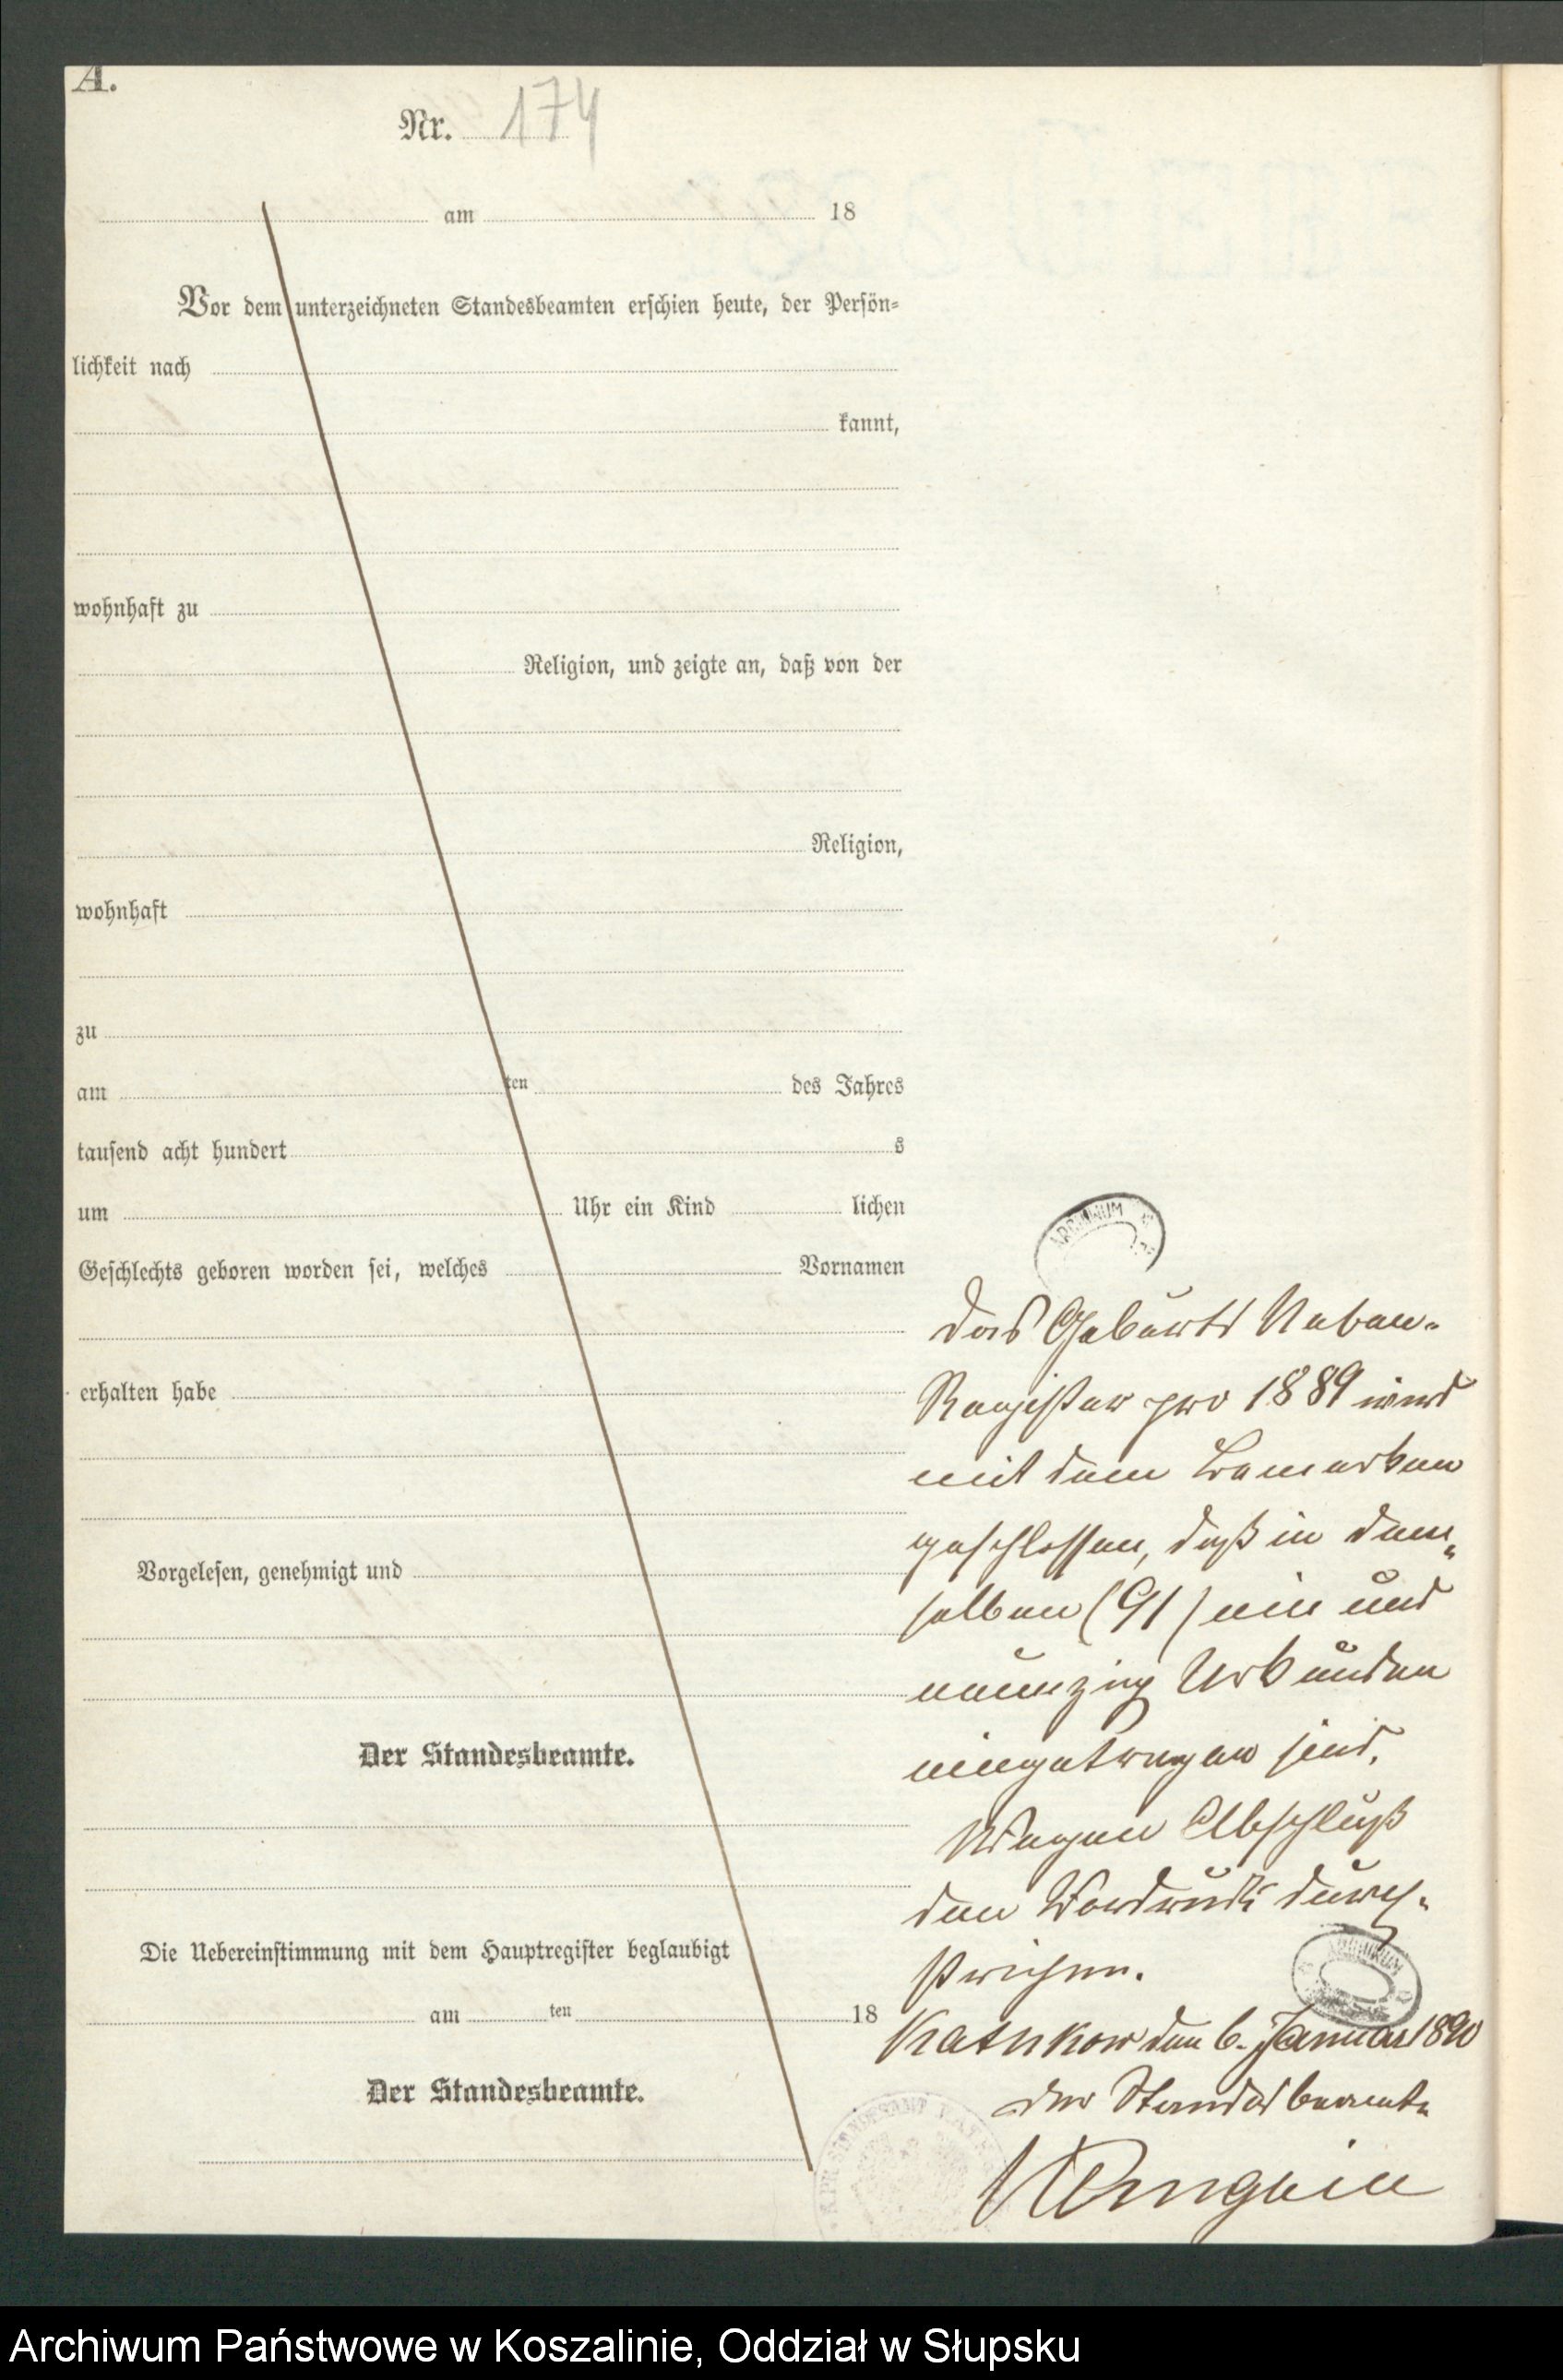 A.
Nr. 174
am 18
Vor dem unterzeichneten Standesbeamten erschien heute, der Persön-
lichkeit nach
kannt,
wohnhaft zu
Religion, und zeigte an, daß von der
Religion,
wohnhaft
zu
am ten des Jahres
tausend acht hundert s
um Uhr ein Kind lichen
Geschlechts geboren worden sei, welches Vornamen
erhalten habe
Vorgelesen, genehmigt und
Der Standesbeamte.
Die Uebereinstimmung mit dem Hauptregister beglaubigt
am ten 18
Der Standesbeamte.
ARCHIWUM
Das Geburts Neben-
Register pro 1889 wird
mit dem Bemerken
geschlossen, daß in dem-
selben (91) ein und
neunzig Urkunden
eingetragen sind.
Wegen Abschluß
den Vordruck durch-
strichen.
ARCHIWUM
Kathkow den 6. Januar 1890
Der Standesbeamte
Archiwum Państwowe w Koszalinie, Oddział w Słupsku